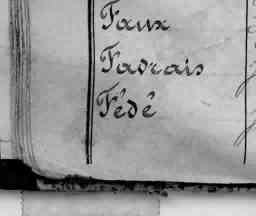 Faux
Favrais
Fédé